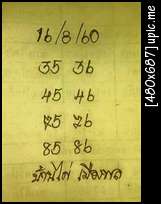 16/8/60
35 36
45 46
75 76
85 86
บ้านไผ่ เมืองพล
[480x687] upic.me